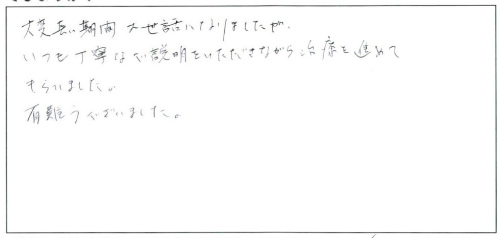 大変長い期間お世話になりましたが、
いつも丁寧なご説明をいただきながら治療を進めて
もらいました。
有難うございました。